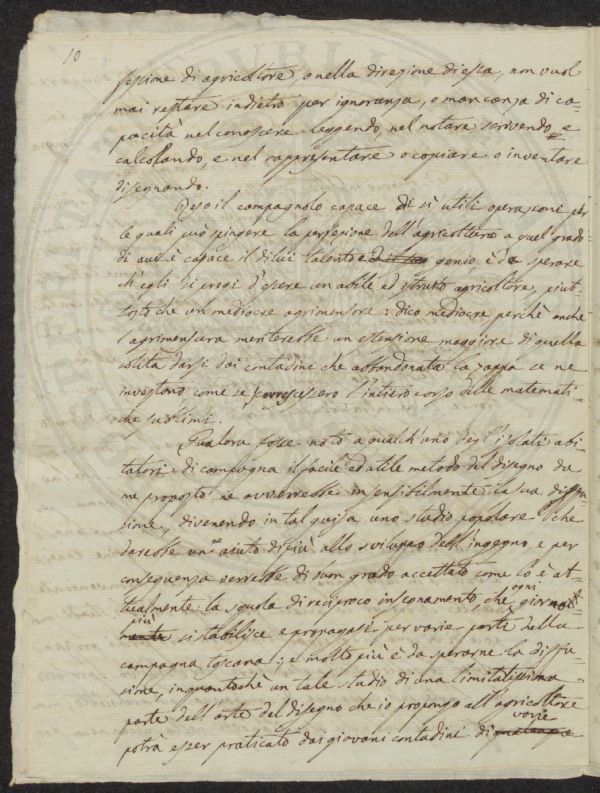 10
fessione di agricoltore, o nella direzione di essa, non vuol
mai restare indietro per ignoranza, o mancanza di ca-
pacità nel conoscere leggendo, nel notare scrivendo, e
calcolando, e nel rappresentare o copiare o inventare
disegnando.
Reso il campagnolo capace di sì utili operazioni per
le quali può spingere la perfezione dell'agricoltura a quel grado
di cui è capace il di lui talento e genio, è da sperare
ch'egli si pregi d'essere un abile ed istruito agricoltore, piut-
tosto che un mediocre agrimensore: dico mediocre perchè anche
l'agrimensura meriterebbe un estensione maggiore di quella
solita darsi dai contadini che abbandonata la zappa se ne
investono come se conoscessero l'intiero corso delle matemati-
che sublimi.
Qualora fosse noto a qualch'uno degl'isolati abi-
tatori di campagna il facile ed utile metodo del disegno da
me proposto ne avverrebbe insensibilmente la sua diffu-
sione, divenendo in tal guisa uno studio popolare che
darebbe un aiuto di più allo sviluppo dell'ingegno, e per
conseguenza verrebbe di buon grado accettato come lo è at-
tualmente la scuola di reciproco insegnamento che ogni giorno
più si stabilisce e propagasi per varie parte della
campagna toscana; e molto più è da sperarne la diffu-
sione, inquantochè un tale studio di una limitatissima
parte dell'arte del disegno che io propongo all'agricoltore
potrà esser praticato dai giovani contadini di varie